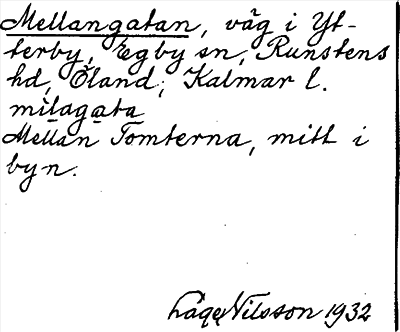 Mellangatan, väg i Yt-
terby, Egby sn, Runstens
hd, Öland, Kalmar l.
milagata
Mellan Tomterna, mitt i
byn.
Nilsson 1932